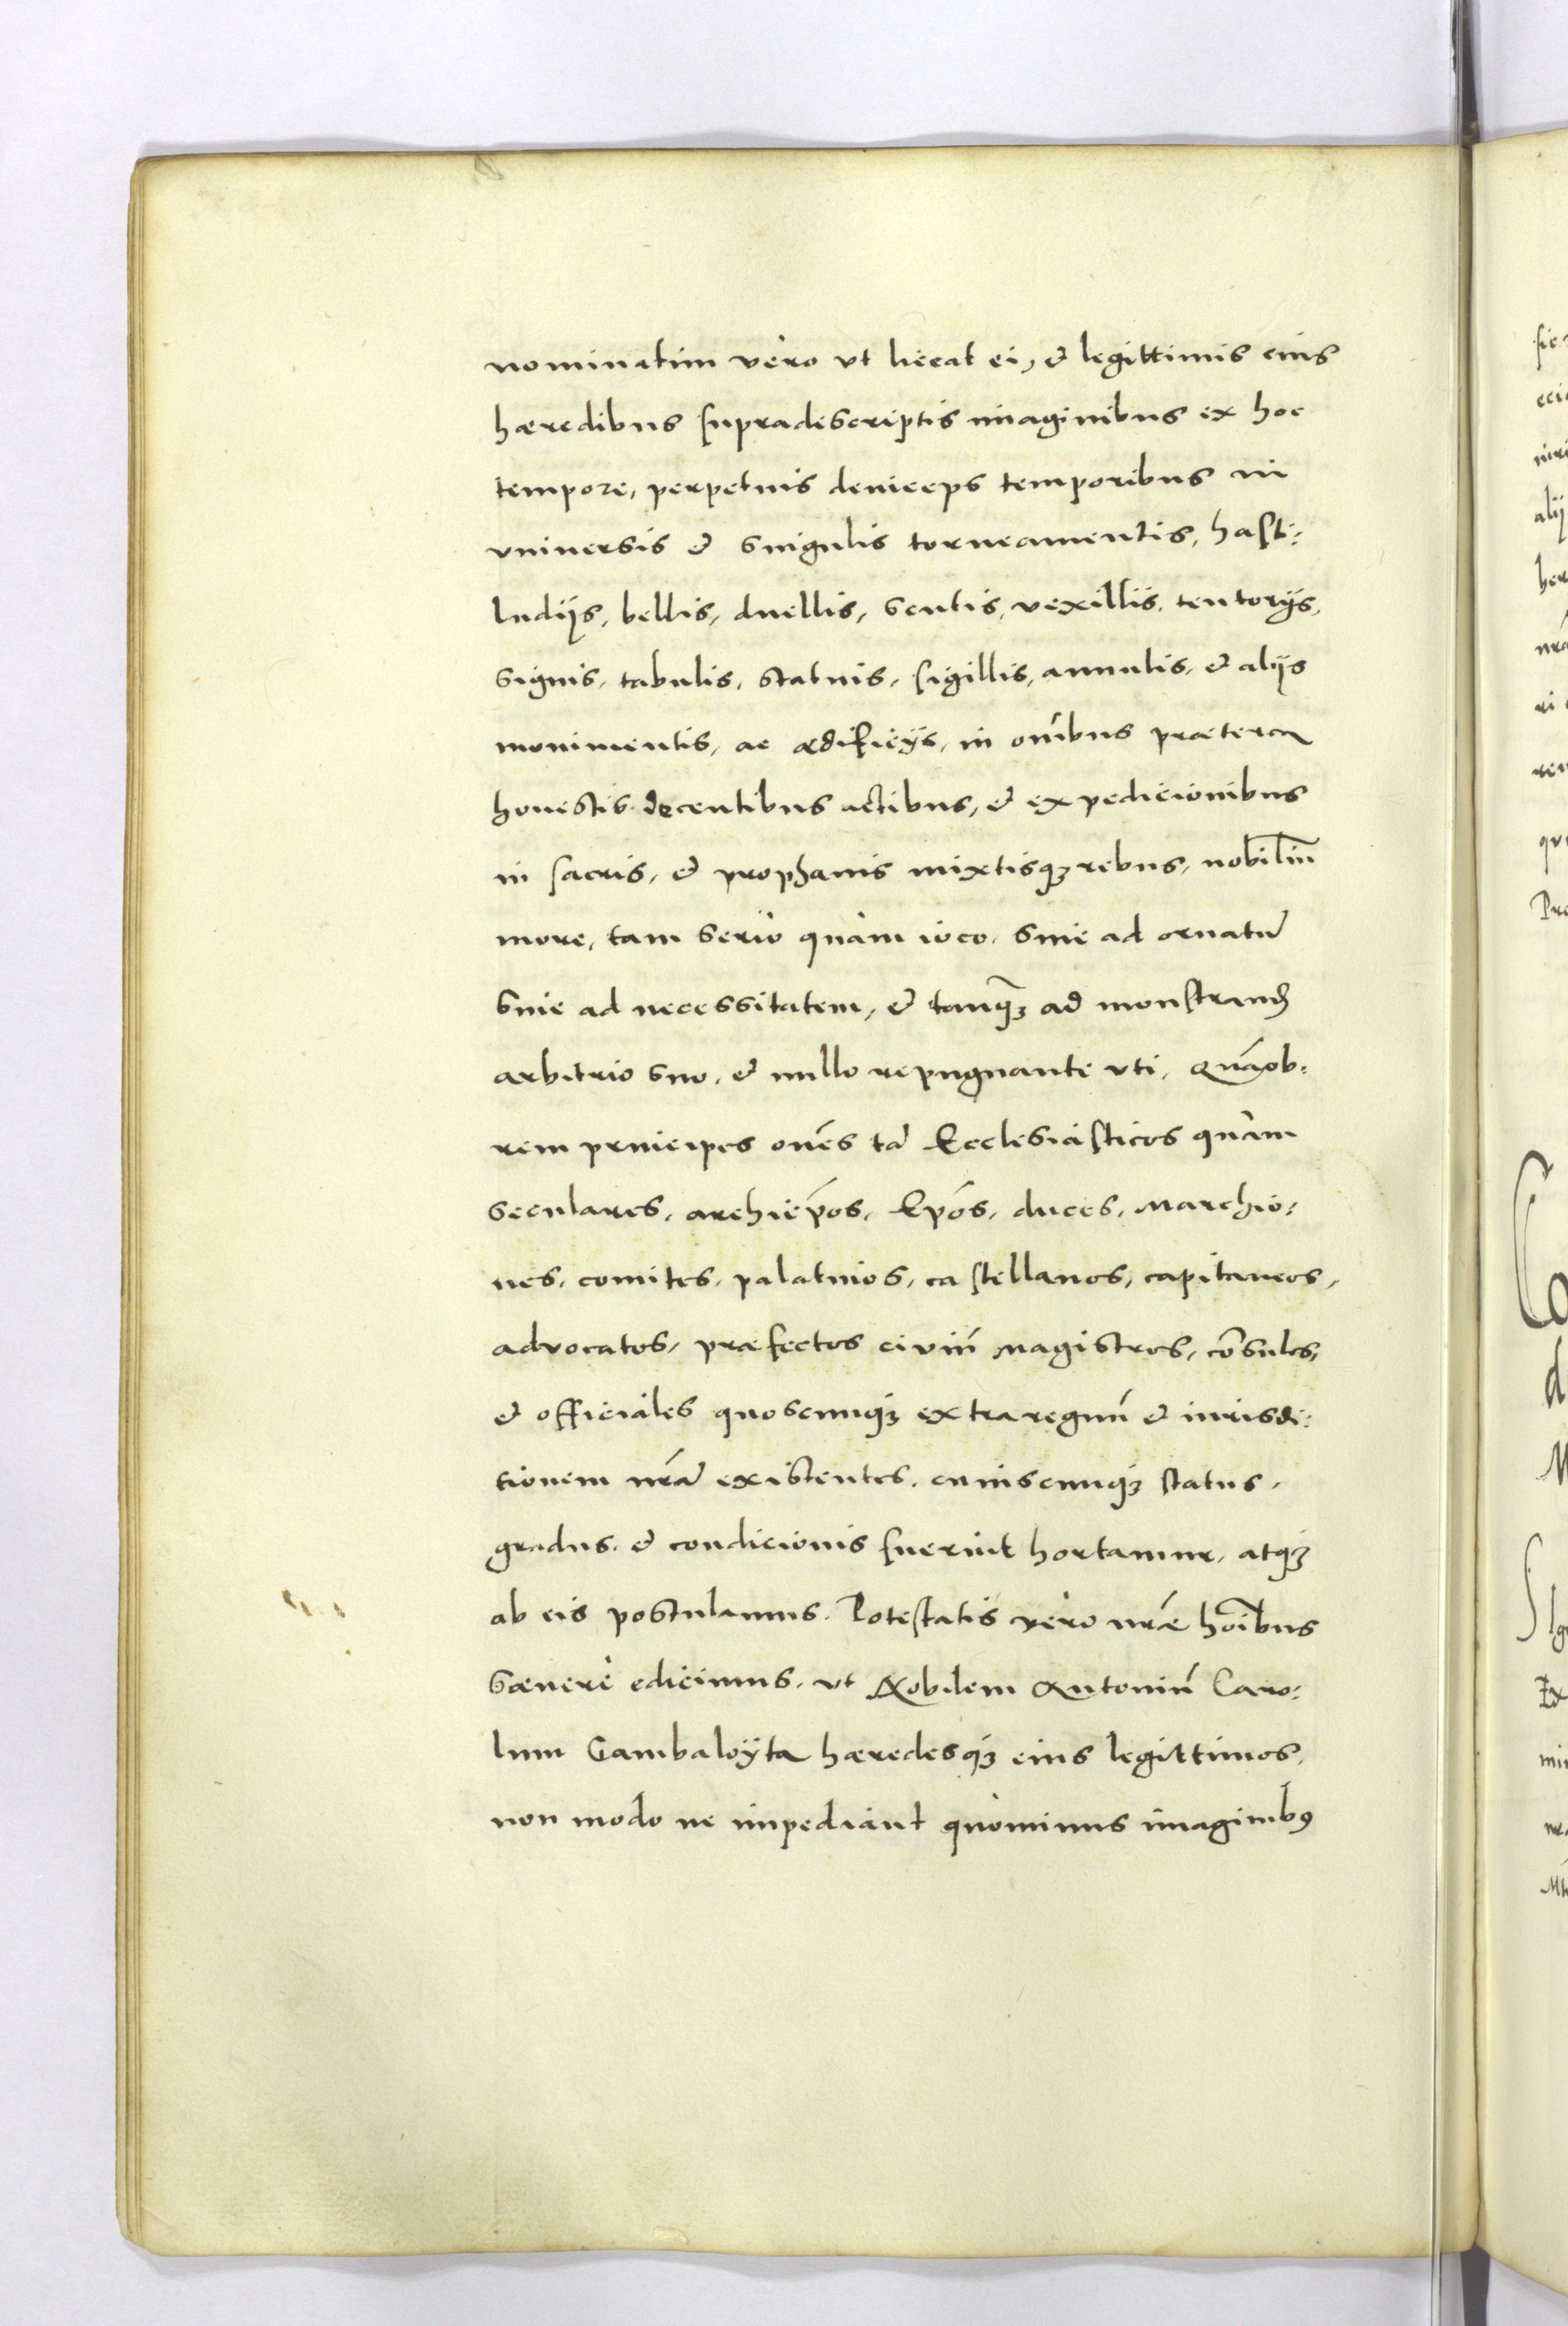 nominatim vero vt liceat ei, & legittimis eius
hæredibus supradescriptis imaginibus ex hoc
tempore, perpetuis deinceps temporibus in
vniuersis & singulis torneamentis, hasti:
ludijs, bellis, duellis, scutis, vexillis, tentorijs,
signis, tabulis, statuis, sigillis, annulis, & alijs
monimentis, ac ædificijs, in oı̃bus præterea
honestis decentibus actibus, & expedicionibus
in sacris, & prophanis mixtisqꝫ rebus, nobiliũ
more, tam serio quàm ioco, siue ad ornatũ
siue ad necessitatem, & tanqꝫ̃ ad monstrandꝫ
arbitrio suo, & nullo repugnante vti, Quãob:
rem principes om̃es tã Ecclesiasticos quàm
seculares, archiep̃os, Ep̃os, duces, Marchio:
nes, comites, palatinos, castellanos, capitaneos,
advocatos, præfectos civiũ Magistros, cõsules,
& officiales quoscunqꝫ extra regnũ & iurisdi:
tionem nr̃ã existentes, cuiuscunqꝫ status,
gradus, & condicionis fuerint hortamur, atqꝫ
ab eis postulamus. Potestatis vero nr̃æ hoı̃bus
sæuere edicimus, vt Nobilem Antoniũ Caro:
lum Gambaloÿta hæredesqꝫ eius legittimos,
non modo ne impediant quominus imaginibꝰ